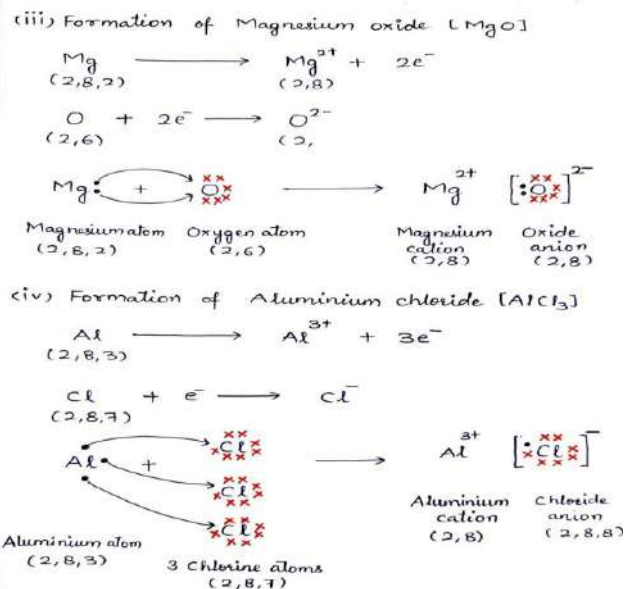 (iii) Formation of Magnesium oxide [MgO]
Mg ⟶ Mg²⁺ + 2e⁻
(2,8,2) (2,8)
O + 2e⁻ ⟶ O²⁻
(2,6) (2,
Mg: + O ⟶ Mg²⁺ [:O]²⁻
Magnesium atom Oxygen atom Magnesium cation Oxide anion
(2,8,2) (2,6) (2,8) (2,8)
(iv) Formation of Aluminium chloride [AlCl₃]
Al ⟶ Al³⁺ + 3e⁻
(2,8,3)
Cl + e⁻ ⟶ Cl⁻
(2,8,7)
Cl
Al + Cl ⟶ Al³⁺ [Cl]⁻
Cl
Aluminium cation Chloride anion
(2,8) (2,8,8)
Aluminium atom 3 Chlorine atoms
(2,8,3) (2,8,7)